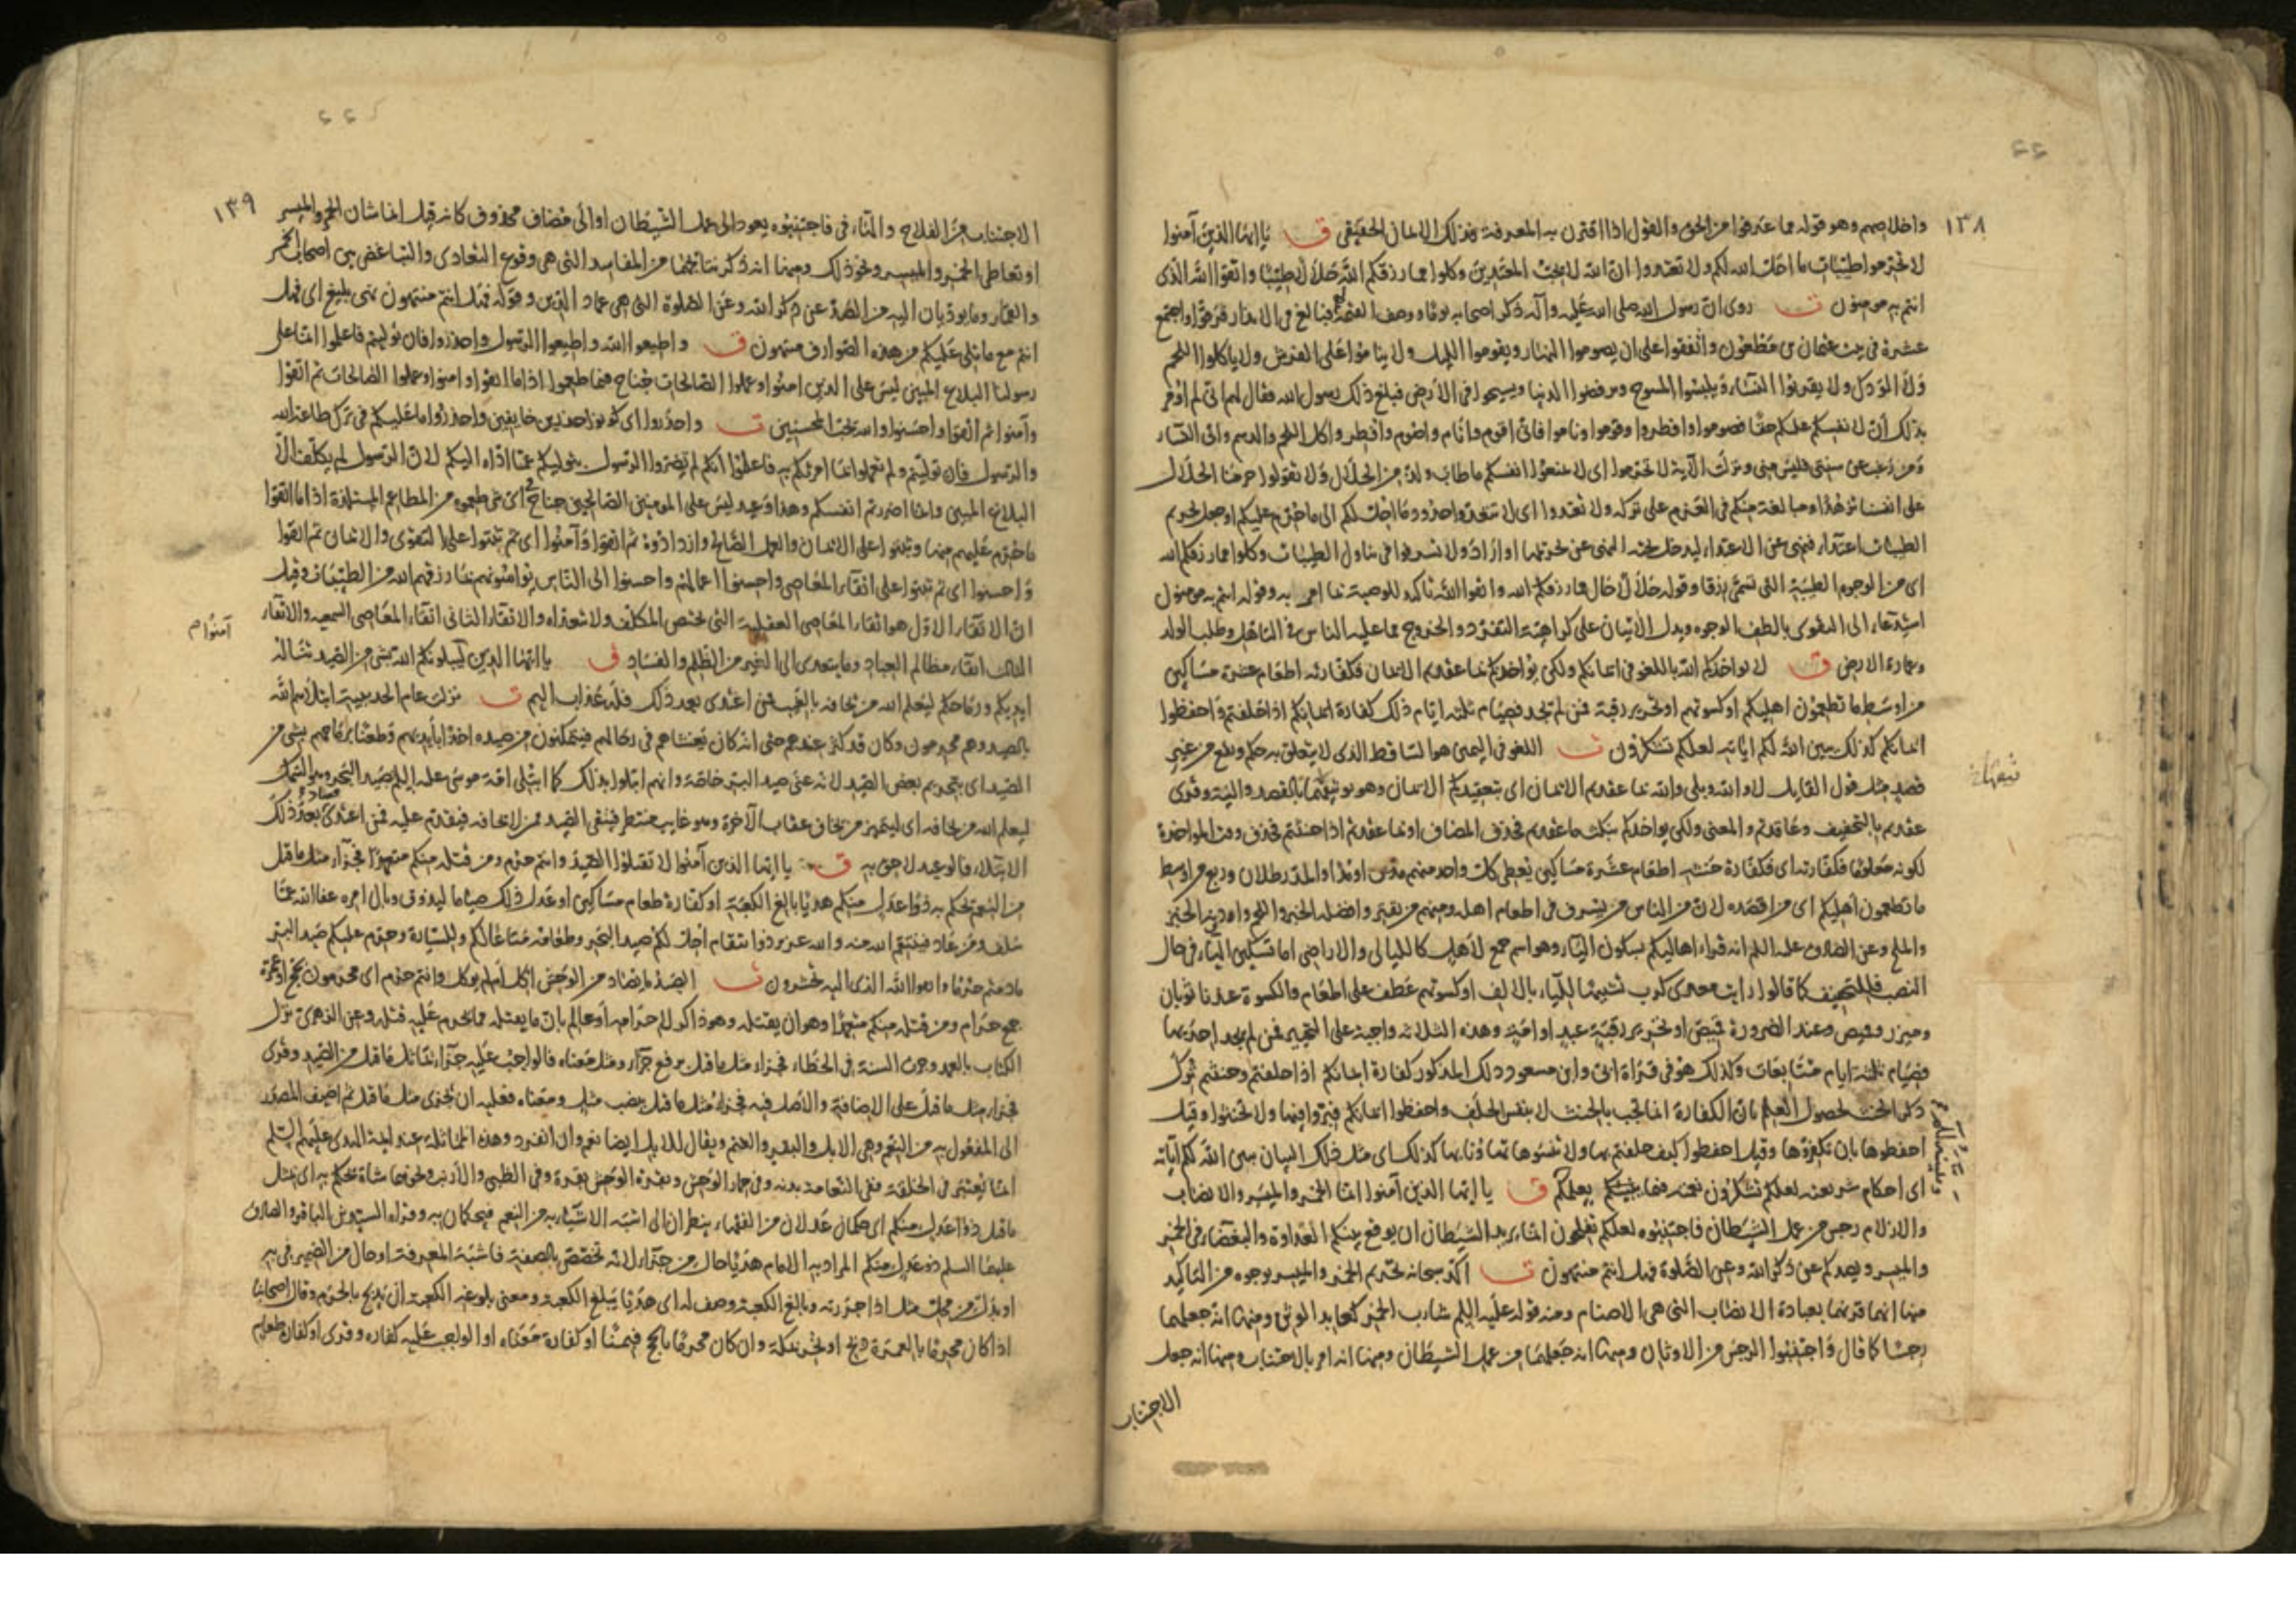 ١٣٨
واخلاصهم وهو قوله مما عرفوا من الحق والقول اذا اقترن به المعرفة فذلك الايمان الحقيقي ق يا ايها الذين آمنوا
لا تحرموا طيبات ما احل الله لكم ولا تعتدوا ان الله لا يحب المعتدين وكلوا مما رزقكم الله حلالا طيبا واتقوا الله الذى
انتم به مومنون ت روى ان رسول الله صلى الله عليه وآله ذكر اصحابه يوما ووصف القيمة فبالغ فى الانذار فرقوا واجتمع
عشرة فى بيت عثمان بن مظعون واتفقوا على ان يصوموا النهار ويقوموا الليل ولا يناموا على الفرش ولا ياكلوا اللحم
ولا الودك ولا يقربوا النساء ويلبسوا المسوح ويرفضوا الدنيا ويسيحوا فى الأرض فبلغ ذلك رسول الله فقال لهم انى لم اومر
بذلك ان لانفسكم عليكم حقا فصوموا وافطروا وقوموا وناموا فانى اقوم وانام واصوم وافطر واكل اللحم والدسم واتى النساء
ومن رغب عن سنتى فليس منى ونزلت الآية لا تحرموا اى لا تمنعوا انفسكم ما طاب ولذ من الحلال ولا تقولوا حرمنا الحلال
على انفسنا تزهدا ومبالغة منكم فى العزم على تركه ولا تعتدوا اى لا تتعدوا حدود ما احل لكم الى ما حرم عليكم او جعل تحريم
الطيبات اعتداء فنهى عن الاعتداء ليدخل تحته النهى عن تحريمها او اراد ولا تسرفوا فى تناول الطيبات وكلوا مما رزقكم الله
اى من الوجوه الطيبة التى تسمى رزقا وقوله حلالا حال مما رزقكم الله واتقوا الله تاكيد للوصية بما امر به وقوله انتم به مومنون
استدعاء الى التقوى بالطف الوجوه ويدل الآيتان على كراهية التفرد والخروج عما عليه الناس فى التاهل وطلب الولد
وعمارة الارض ق لا يواخذكم الله باللغو فى ايمانكم ولكن يواخذكم بما عقدتم الايمان فكفارته اطعام عشرة مساكين
من اوسط ما تطعمون اهليكم او كسوتهم او تحرير رقبة فمن لم يجد فصيام ثلثة ايام ذلك كفارة ايمانكم اذا حلفتم واحفظوا
ايمانكم كذلك يبين الله لكم آياته لعلكم تشكرون ت اللغو فى اليمين هو الساقط الذى لا يتعلق به حكم ويقع من غير
قصد مثل قول القايل لا والله وبلى والله بما عقدتم الايمان اى بتعقيدكم الايمان وهو توثيقها بالقصد والنية وقرى
عقدتم بالتخفيف وعاقدتم والمعنى ولكن يواخذكم بنكث ما عقدتم فحذف المضاف او بما عقدتم اذا حنثتم فحذف وقت المواخذة
لكونه معلوما فكفارته اى فكفارة حنثه اطعام عشرة مساكين يعطى كل واحد منهم مدين او مدا والمد رطلان وربع من اوسط
ما تطعمون اهليكم اى من اقصده لان من الناس من يسرف فى اطعام اهله ومنهم من يقتر وافضله الخبز واللحم وادونه الخبز
والملح وعن الصادق عليه السلم انه قراء اهاليكم بسكون الياء وهو اسم جمع لأهل كالليالى والاراضى اما تسكين الياء فى حال
النصب فللتخفيف كما قالوا رايت معدى كرب تشبيها للياء بالالف او كسوتهم عطف على اطعام والكسوة عندنا ثوبان
وميزر وقميص وعند الضرورة قميص او تحرير رقبة عبد او امة وهذه الثلاثة واجبة على التخيير فمن لم يجد احديها
فصيام ثلثة ايام متتابعات وكذلك هو فى قراءة ابى وابن مسعود ذلك المذكور كفارة ايمانكم اذا حلفتم وحنثتم ترك
ذكر الحنث لحصول العلم بان الكفارة انما تجب بالحنث لا بنفس الحلف واحفظوا ايمانكم فبروا فيها ولا تحنثوا وقيل
احفظوها بان تكفروها وقيل احفظوا كيف حلفتم بها ولا تنسوها تهاونا بها كذلك اى مثل ذلك البيان يبين الله لكم آياته
اى احكام شريعته لعلكم تشكرون نعمته فيما يعلمكم ق يا ايها الذين آمنوا انما الخمر والميسر والانصاب
والازلام رجس من عمل الشيطان فاجتنبوه لعلكم تفلحون انما يريد الشيطان ان يوقع بينكم العداوة والبغضاء فى الخمر
والميسر ويصدكم عن ذكر الله وعن الصلوة فهل انتم منتهون ت اكد سبحانه تحريم الخمر والميسر بوجوه من التاكيد
منها انه قرنهما بعبادة الانصاب التى هى الاصنام ومنه قوله عليه السلم شارب الخمر كعابد الوثن ومنها انه جعلهما
رجسا كما قال فاجتنبوا الرجس من الاوثان ومنها انه جعلهما من عمل الشيطان ومنها انه امر بالاجتناب ومنها انه جعل
الاجتناب
١٣٩
الاجتناب من الفلاح والهاء فى فاجتنبوه يعود الى عمل الشيطان او الى مضاف محذوف كانه قيل انما شان الخمر والميسر
او تعاطى الخمر والميسر ونحو ذلك ومنها انه ذكر نتايجهما من المفاسد التى هى وقوع التعادى والتباغض بين اصحاب الخمر
والقمار وما يوديان اليه من الصد عن ذكر الله وعن الصلوة التى هى عماد الدين وقوله فهل انتم منتهون نهى بليغ اى فهل
انتم مع ما تلى عليكم من هذه الصوارف منتهون ق واطيعوا الله واطيعوا الرسول واحذروا فان توليتم فاعلموا انما على
رسولنا البلاغ المبين ليس على الذين امنوا وعملوا الصالحات جناح فيما طعموا اذا ما اتقوا وامنوا وعملوا الصالحات ثم اتقوا
وآمنوا ثم اتقوا واحسنوا والله يحب المحسنين ت واحذروا اى كونوا حذرين خايفين واحذروا ما عليكم فى ترك طاعة الله
والرسول فان توليتم ولم تعملوا بما امرتكم به فاعلموا انكم لم تضروا الرسول بتوليكم عما اداه اليكم لان الرسول لم يكلف الا
البلاغ المبين وانما اضررتم انفسكم وهذا وعيد ليس على المومنين الصالحين جناح فى اى شى طعموه من المطاعم المستلذة اذا ما اتقوا
ما حرم عليهم منها وثبتوا على الايمان والعمل الصالح وازدادوه ثم اتقوا وآمنوا اى ثم ثبتوا على التقوى والايمان ثم اتقوا
واحسنوا اى ثم ثبتوا على اتقاء المعاصى واحسنوا اعمالهم واحسنوا الى الناس بمواساتهم بما رزقهم الله من الطيبات وقيل
ان الاتقاء الاول هو اتقاء المعاصى العقلية التى تختص المكلف ولا تتعداه والاتقاء الثانى اتقاء المعاصى السمعيه والاتقاء
آمنوا م
الثالث اتقاء مظالم العباد وما يتعدى الى الغير من الظلم والفساد ق يا ايها الذين آمنوا ليبلونكم الله بشى من الصيد تناله
ايديكم ورماحكم ليعلم الله من يخافه بالغيب فمن اعتدى بعد ذلك فله عذاب اليم ت نزلت عام الحديبية ابتلاهم الله
بالصيد وهم محرمون وكان قد كثر عندهم حتى انه كان يغشاهم فى رحالهم فيتمكنون من صيده اخذا بأيديهم وطعنا برماحهم بشى من
الصيد اى بتحريم بعض الصيد لانه عنى صيد البر خاصة وانهم ابتلوا بذلك كما ابتلى امة موسى عليه السلم بصيد البحر وهو السمك
ليعلم الله من يخافه اى ليتميز من يخاف عقاب الآخرة وهو غايب منتظر فيتقى الصيد ممن لا يخافه فيقدم عليه فمن اعتدى فصاد بعد ذلك
الابتلاء فالوعيد لاحق به ق يا ايها الذين آمنوا لا تقتلوا الصيد وانتم حرم ومن قتله منكم متعمدا فجزاء مثل ما قتل
من النعم يحكم به ذوا عدل منكم هديا بالغ الكعبة او كفارة طعام مساكين او عدل ذلك صياما ليذوق وبال امره عفا الله عما
سلف ومن عاد فينتقم الله منه والله عزيز ذو انتقام احل لكم صيد البحر وطعامه متاعا لكم وللسيارة وحرم عليكم صيد البر
ما دمتم حرما واتقوا الله الذى اليه تحشرون ت الصيد ما يصاد من الوحش اكل أم لم يوكل وانتم حرم اى محرمون بحج او عمرة
جمع حرام ومن قتله منكم متعمدا وهو ان يقتله وهو ذاكر لاحرامه أو عالم بان ما يقتله مما يحرم عليه قتله وعن الزهرى نزل
الكتاب بالعمد وجرت السنة فى الخطاء فجزاء مثل ما قتل برفع جزاء ومثل معناه فالواجب عليه جزاء يماثل ما قتل من الصيد وقرى
فجزاء مثل ما قتل على الاضافة والاصل فيه فجزاء مثل ما قتل بنصب مثل ومعناه فعليه ان يجزى مثل ما قتل ثم اضيف المصدر
الى المفعول به من النعم وهى الابل والبقر والغنم ويقال للابل ايضا نعم وان انفرد وهذه المماثلة عند ائمة الهدى عليهم السلم
انما تعتبر فى الخلقة ففى النعامة بدنه وفى حمار الوحش وبقرة الوحش بقرة وفى الظبى والأرنب ونحوهما شاة يحكم به اى بمثل
ما قتل ذوا عدل منكم اى حكمان عدلان من الفقهاء ينظران الى اشبه الاشياء به من النعم فيحكمان به وقراء السيدين الباقر والصادق
عليهما السلم ذو عدل منكم المراد به الامام هديا حال من جزاء لانه تخصص بالصفة فاشبه المعرفة او حال من الضمير فى به
او بدل من محل مثل اذا جررته وبالغ الكعبة وصف له اى هديا يبلغ الكعبة ومعنى بلوغه الكعبة ان يذبح بالحرم وقال اصحابنا
اذا كان محرما بالعمرة ذبح او نحر بمكة وان كان محرما بالحج فبمنا او كفارة معناه او الواجب عليه كفاره وقرى او كفارة طعام